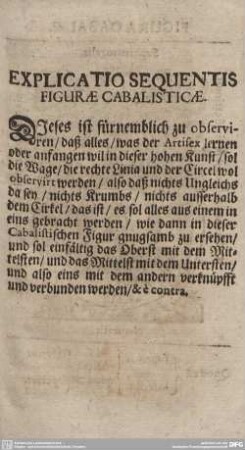 EXPLICATIO SEQUENTIS
FIGURÆ CABALISTICÆ.
DJeses ist fürnemblich zu observi-
ren / daß alles / was der Artifex lernen
oder anfangen wil in dieser hohen Kunst / sol
die Wage / die rechte Linia und der Circel wol
observirt werden / also daß nichts Ungleichs
da sey / nichts Krumbs / nichts ausserhalb
dem Cirkel / das ist / es sol alles aus einem in
eins gebracht werden / wie dann in dieser
Cabalistischen Figur gnugsamb zu ersehen /
und sol einfältig das Oberst mit dem Mit-
telsten / und das Mittelst mit dem Untersten /
und also eins mit dem andern verknüpfft
und verbunden werden / & è contra.